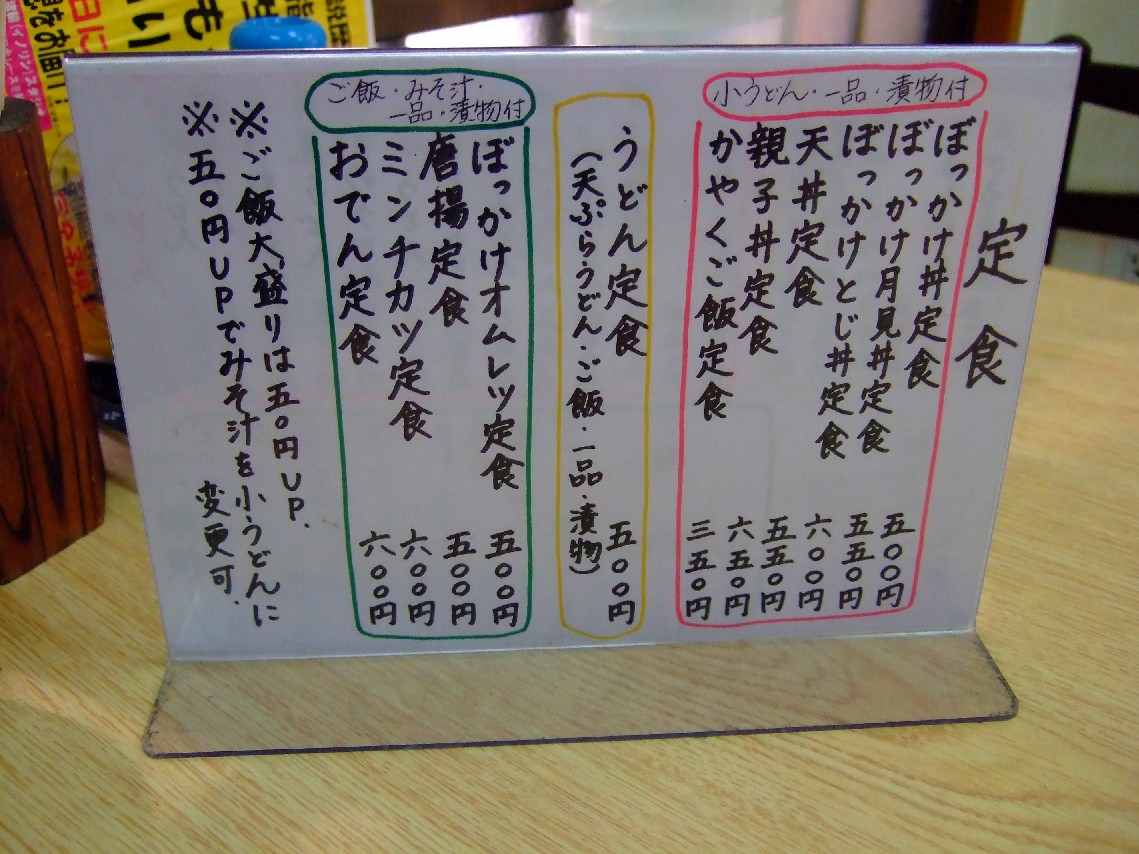 定食
小うどん・一品・漬物付
ぼっかけ丼定食 五〇〇円
ぼっかけ月見丼定食 五五〇円
ぼっかけとじ丼定食 六〇〇円
天丼定食 五五〇円
親子丼定食 六五〇円
かやくご飯定食 三五〇円
うどん定食 五〇〇円
(天ぷらうどん・ご飯・一品・漬物)
ご飯・みそ汁・
一品・漬物付
ぼっかけオムレツ定食 五〇〇円
唐揚定食 五〇〇円
ミンチカツ定食 六〇〇円
おでん定食 六〇〇円
※ご飯大盛りは五〇円UP.
※五〇円UPでみそ汁を小うどんに
変更可.